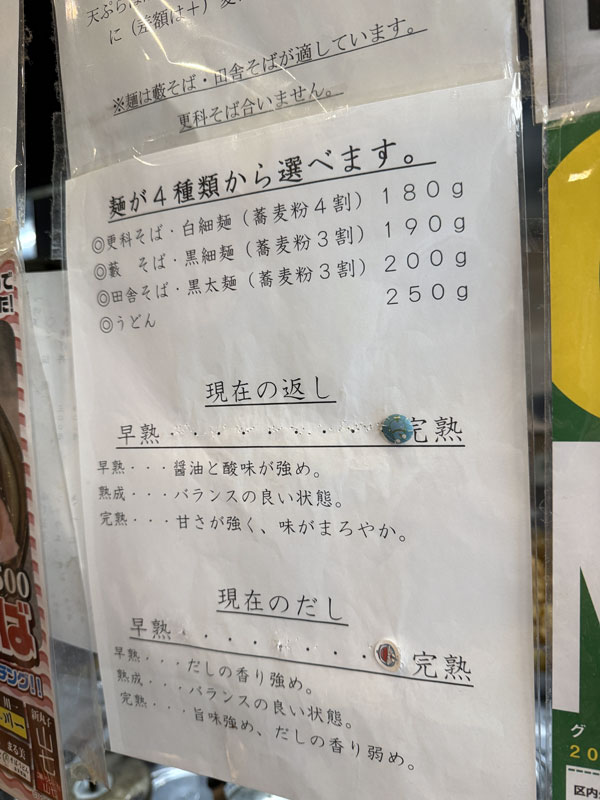 天ぷら
に(差額は+)変
※麺は藪そば・田舎そばが適しています。
更科そば合いません。
麺が4種類から選べます。
◎更科そば・白細麺(蕎麦粉4割) 180g
◎藪 そば・黒細麺(蕎麦粉3割) 190g
◎田舎そば・黒太麺(蕎麦粉3割) 200g
◎うどん 250g
現在の返し
早熟・・・・・・・・・完熟
早熟・・・醤油と酸味が強め。
熟成・・・バランスの良い状態。
完熟・・・甘さが強く、味がまろやか。
現在のだし
早熟・・・・・・・・・完熟
早熟・・・だしの香り強め。
熟成・・・バランスの良い状態。
完熟・・・旨味強め、だしの香り弱め。
500
ば
新丸子
山七
グ
20
区内